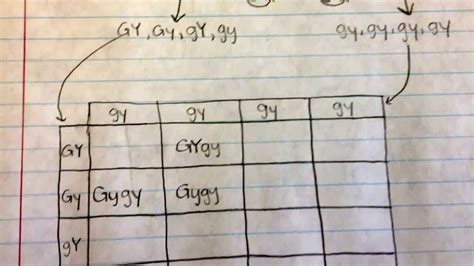 GY, Gy, gY, gy gy, gy, gy, gy
gy gy gy gy
GY GYgy
Gy GygY Gygy
gY